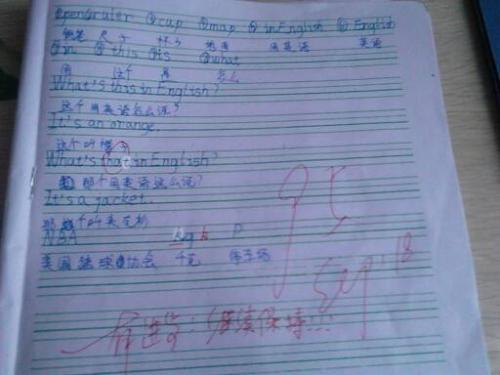 ①pen②ruler ③cup ④map ⑤ in English ⑥ English
钢笔 尺子 杯子 地图 用英语 英语
⑦in ⑧this ⑨is ⑩what
用 这个 是 怎么
What's this in English?
这个用英语怎么说?
It's an orange.
这个叫橙子
What's that in English?
那个用英语怎么说?
It's a jacket.
那个叫夹克衫
NBA kg k P
美国篮球协会 千克 停车场
95
Sep. 18
有进步:继续保持!!!